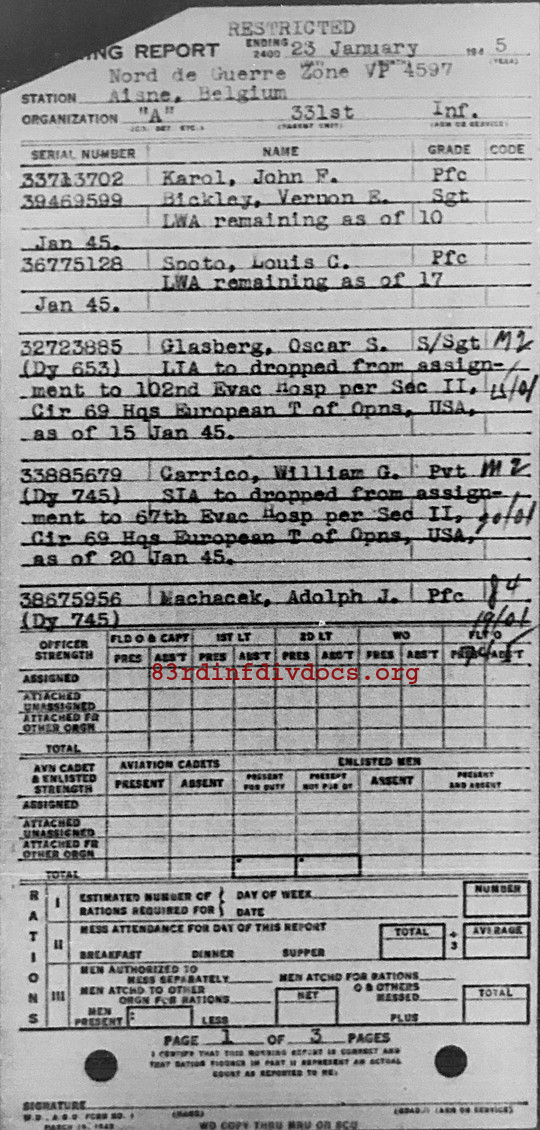 RESTRICTED
NING REPORT ENDING 2400 23 January 194 5
(YEAR)
Nord de Guerre Zone VP 4597
STATION Aisne, Belgium
ORGANIZATION "A" 331st Inf.
(CO. DET. ETC.) (PARENT UNIT) (ARM OR SERVICE)
SERIAL NUMBER NAME GRADE CODE
33713702 Karol, John F. Pfc
39469599 Bickley, Vernon E. Sgt
LWA remaining as of 10
Jan 45.
36775128 Spoto, Louis C. Pfc
LWA remaining as of 17
Jan 45.
32723885 Glasberg, Oscar S. S/Sgt M2
(Dy 653) LIA to dropped from assign-
ment to 102nd Evac Hosp per Sec II, 15/01
Cir 69 Hqs European T of Opns, USA,
as of 15 Jan 45.
33885679 Carrico, William G. Pvt M2
(Dy 745) SIA to dropped from assign-
ment to 67th Evac Hosp per Sec II, 20/01
Cir 69 Hqs European T of Opns, USA,
as of 20 Jan 45.
38675956 Machacek, Adolph J. Pfc 84
(Dy 745) 19/01
OFFICER STRENGTH FLD O & CAPT 1ST LT 2D LT WO FLT O
PRES ABS'T PRES ABS'T PRES ABS'T PRES ABS'T PRES ABS'T
83rdinfdivdocs.org
ASSIGNED
ATTACHED UNASSIGNED
ATTACHED FR OTHER ORGN
TOTAL
AVN CADET & ENLISTED STRENGTH AVIATION CADETS ENLISTED MEN
PRESENT ABSENT PRESENT FOR DUTY PRESENT NOT FOR DY ABSENT PRESENT AND ABSENT
ASSIGNED
ATTACHED UNASSIGNED
ATTACHED FR OTHER ORGN
TOTAL
RATIONS
I ESTIMATED NUMBER OF RATIONS REQUIRED FOR { DAY OF WEEK DATE NUMBER
II MESS ATTENDANCE FOR DAY OF THIS REPORT TOTAL ÷ 3 AVERAGE
BREAKFAST DINNER SUPPER
III MEN AUTHORIZED TO MESS SEPARATELY MEN ATCHD FOR RATIONS
MEN ATCHD TO OTHER ORGN FOR RATIONS NET O & OTHERS MESSED TOTAL
MEN PRESENT LESS PLUS
PAGE 1 OF 3 PAGES
I CERTIFY THAT THIS MORNING REPORT IS CORRECT AND
THAT RATION FIGURES IN PART II REPRESENT AN ACTUAL
COUNT AS REPORTED TO ME:
SIGNATURE
W.D., A.G.O. FORM NO. 1 (NAME) (GRADE) (ARM OR SERVICE)
WD COPY THRU MRU OR SCU